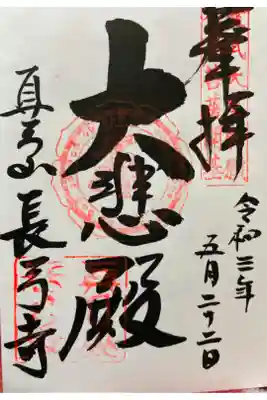 奉拝
令和三年
五月二十二日
大悲殿
真弓山
長弓寺